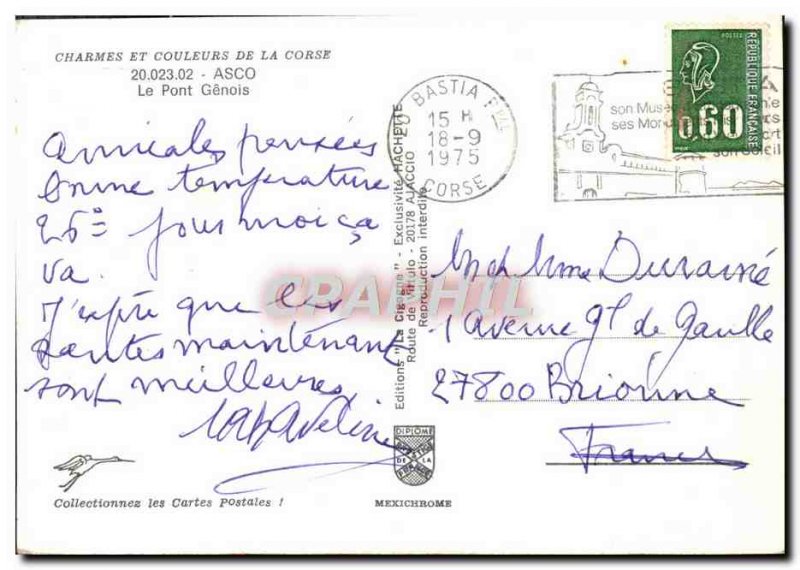 CHARMES ET COULEURS DE LA CORSE
20.023.02 - ASCO
Le Pont Gênois
amicales pensées
bonne température
26° pour moi ça
va.
J'espère que les
santés maintenant
sont meilleures,
Collectionnez les Cartes Postales !
Editions "La Cigogne" - Exclusivité HACHETTE
Route de Mitulo - 20178 AJACCIO
Reproduction interdite
DIPLÔME
DE LA
MEXICHROME
BASTIA
15 H
18-9
1975
CORSE
son Musée
ses Mon
son Soleil
POSTES
RÉPUBLIQUE FRANÇAISE
0,60
Mme Duramé
1 avenue Gl de Gaulle
27800 Brionne
France
CPAPHIL